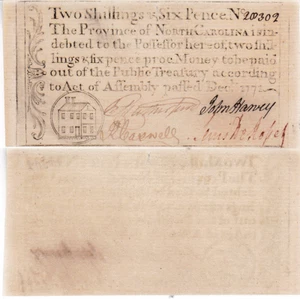 Two Shillings & Six Pence. No 20302
The Province of NORTH CAROLINA is in-
debted to the Possessor hereof, two shil-
lings & six pence proc. Money to be paid
out of the Public Treasury according
to Act of Assembly passed Decr. 1771
John Harvey
R Caswell Lewis De Rosset